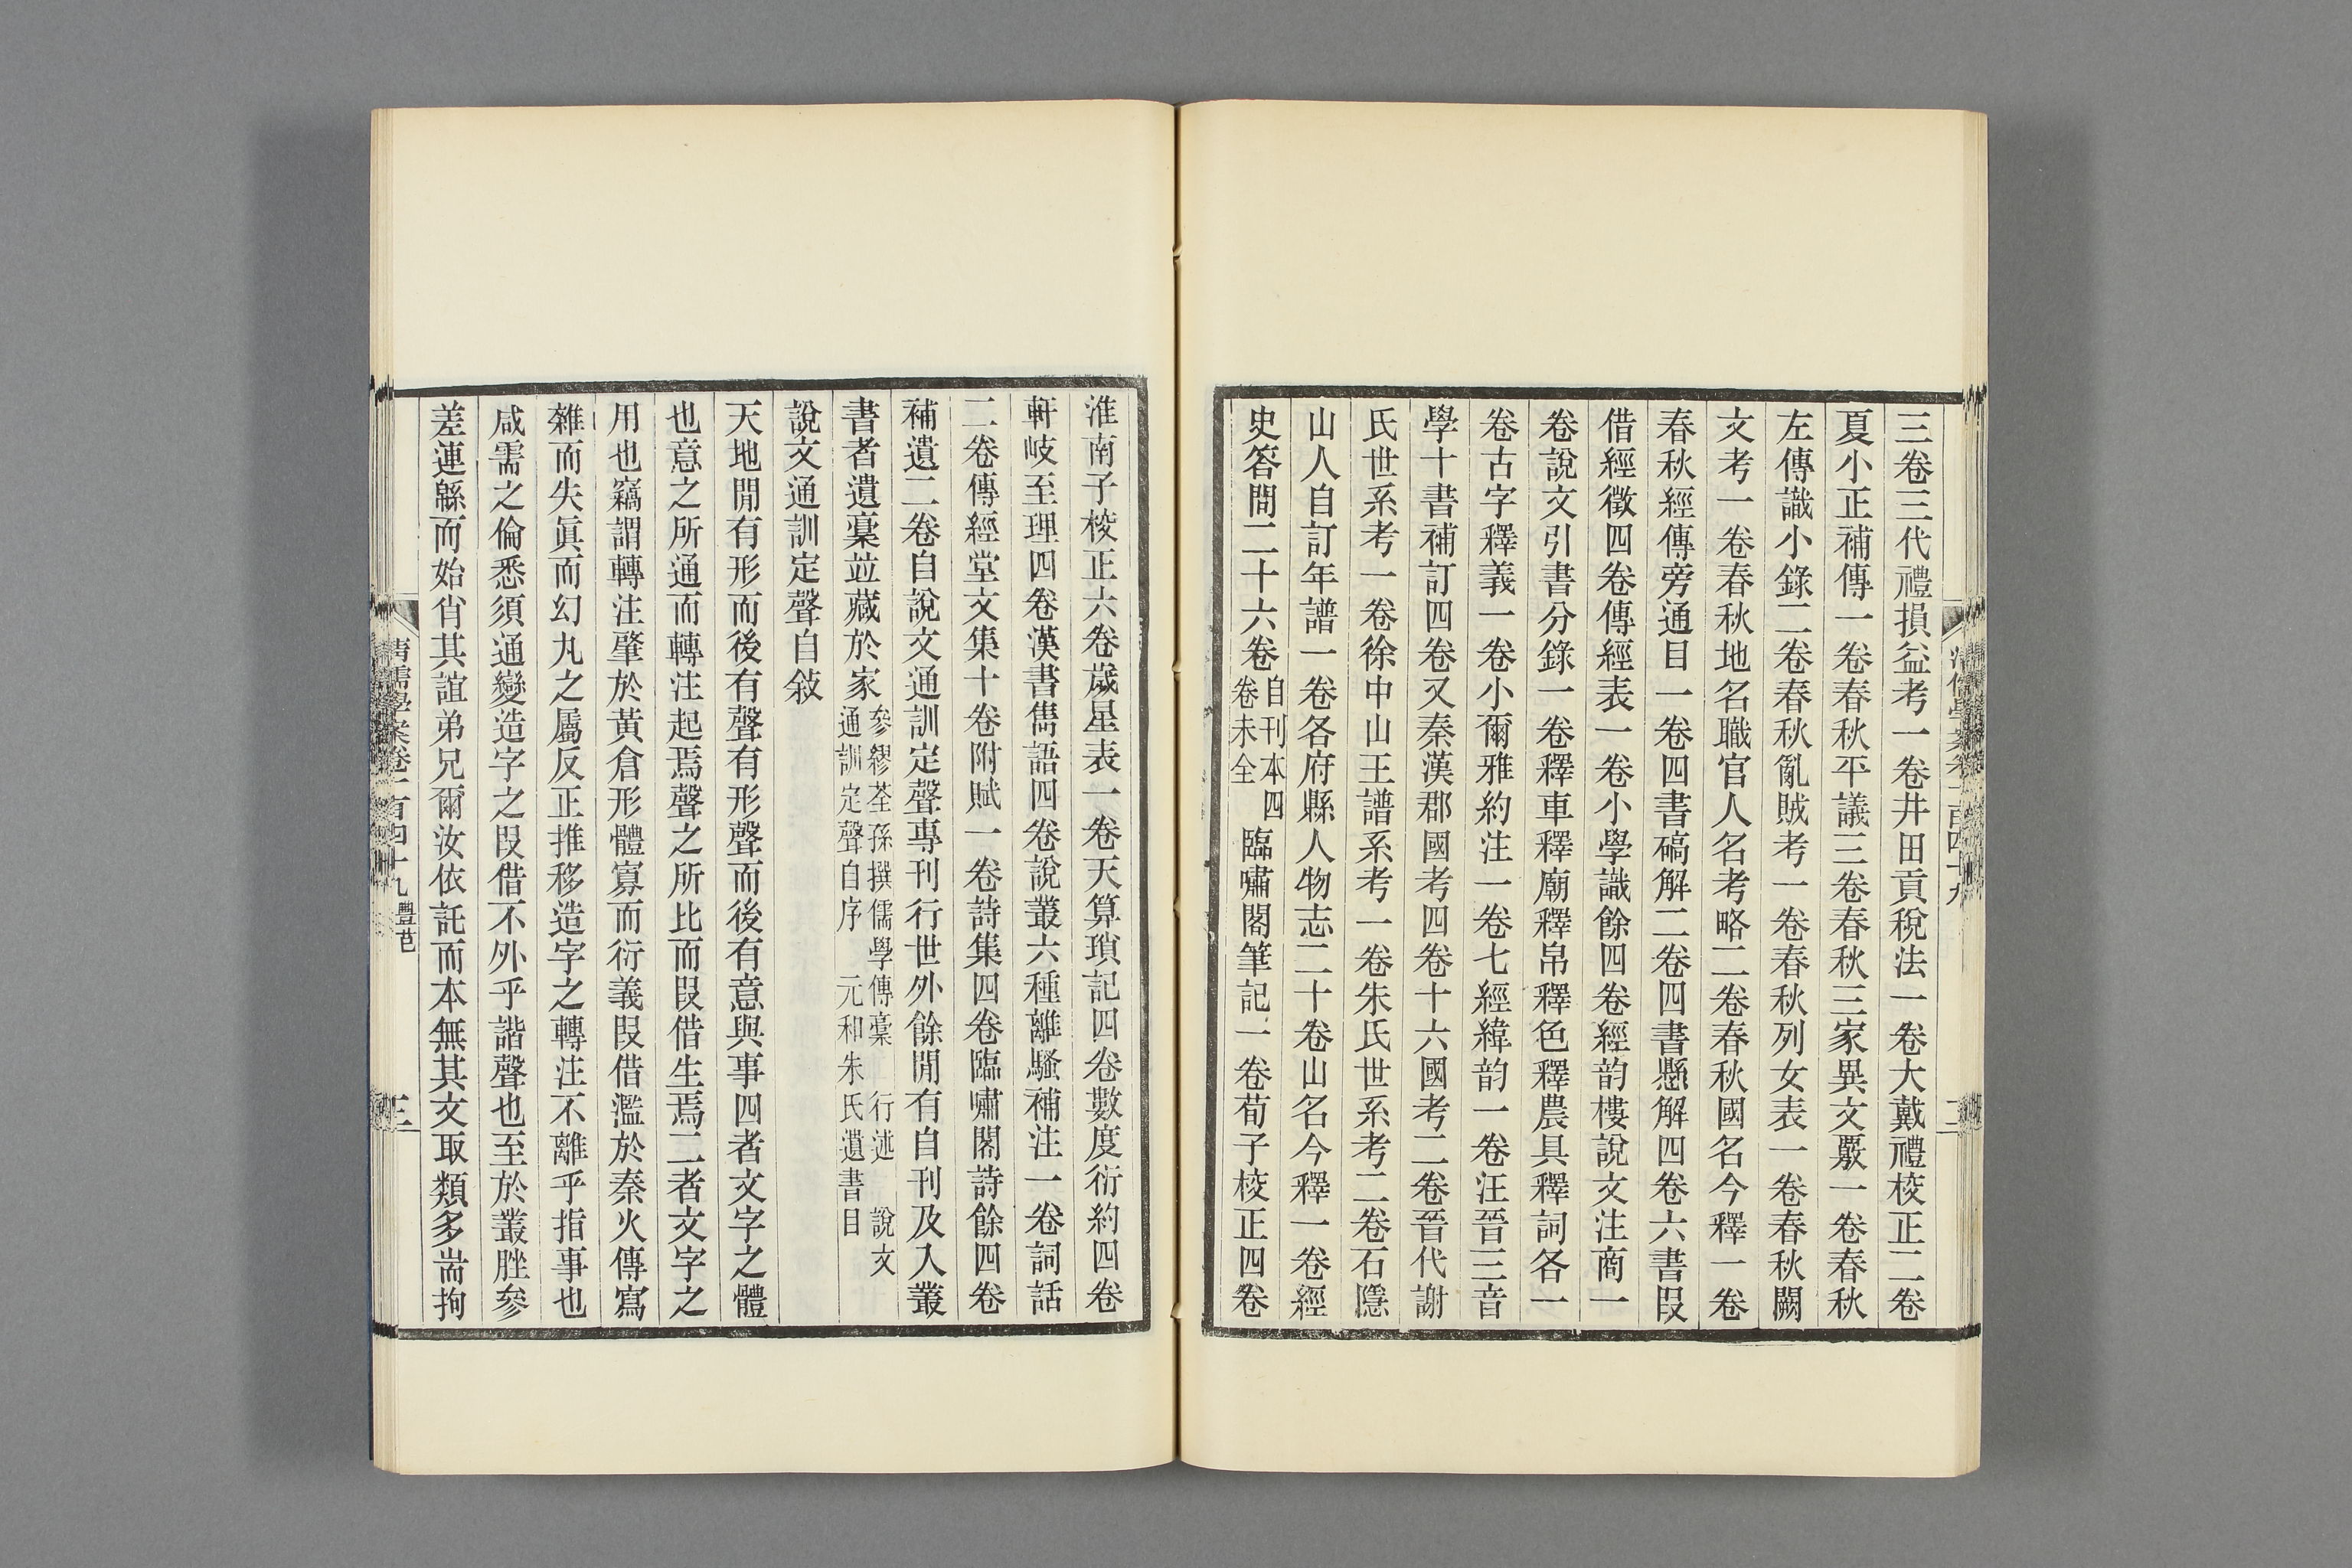 三卷三代禮損益考一卷井田貢稅法一卷大戴禮校正二卷
夏小正補傳一卷春秋平議三卷春秋三家異文覈一卷春秋
左傳識小錄二卷春秋亂賊考一卷春秋列女表一卷春秋闕
文考一卷春秋地名職官人名考略二卷春秋國名今釋一卷
春秋經傳旁通目一卷四書碻解二卷四書懸解四卷六書叚
借經徵四卷傳經表一卷小學識餘四卷經韵樓說文注商一
卷說文引書分錄一卷釋車釋廟釋帛釋色釋農具釋詞各一
卷古字釋義一卷小爾雅約注一卷七經緯韵一卷汪晉三音
學十書補訂四卷又秦漢郡國考四卷十六國考二卷晉代謝
氏世系考一卷徐中山王譜系考一卷朱氏世系考二卷石隱
山人自訂年譜一卷各府縣人物志二十卷山名今釋一卷經
史答問二十六卷自刊本四卷未全臨嘯閣筆記一卷荀子校正四卷
淮南子校正六卷歲星表一卷天算瑣記四卷數度衍約四卷
軒岐至理四卷漢書雋語四卷說叢六種離騷補注一卷詞話
二卷傳經堂文集十卷附賦一卷詩集四卷臨嘯閣詩餘四卷
補遺二卷自說文通訓定聲專刊行世外餘閒有自刊及入叢
書者遺稾竝藏於家參繆荃孫撰儒學傳稾 行述 說文通訓定聲自序 元和朱氏遺書目
說文通訓定聲自敍
天地閒有形而後有聲有形聲而後有意與事四者文字之體
也意之所通而轉注起焉聲之所比而叚借生焉二者文字之
用也竊謂轉注肇於黃倉形體寡而衍義叚借濫於秦火傳寫
雜而失眞而幻丸之屬反正推移造字之轉注不離乎指事也
咸需之倫悉須通變造字之叚借不外乎諧聲也至於叢脞參
差連緜而始肖其誼弟兄爾汝依託而本無其文取類多耑拘
清儒學案卷一百四十九 豐芑
三